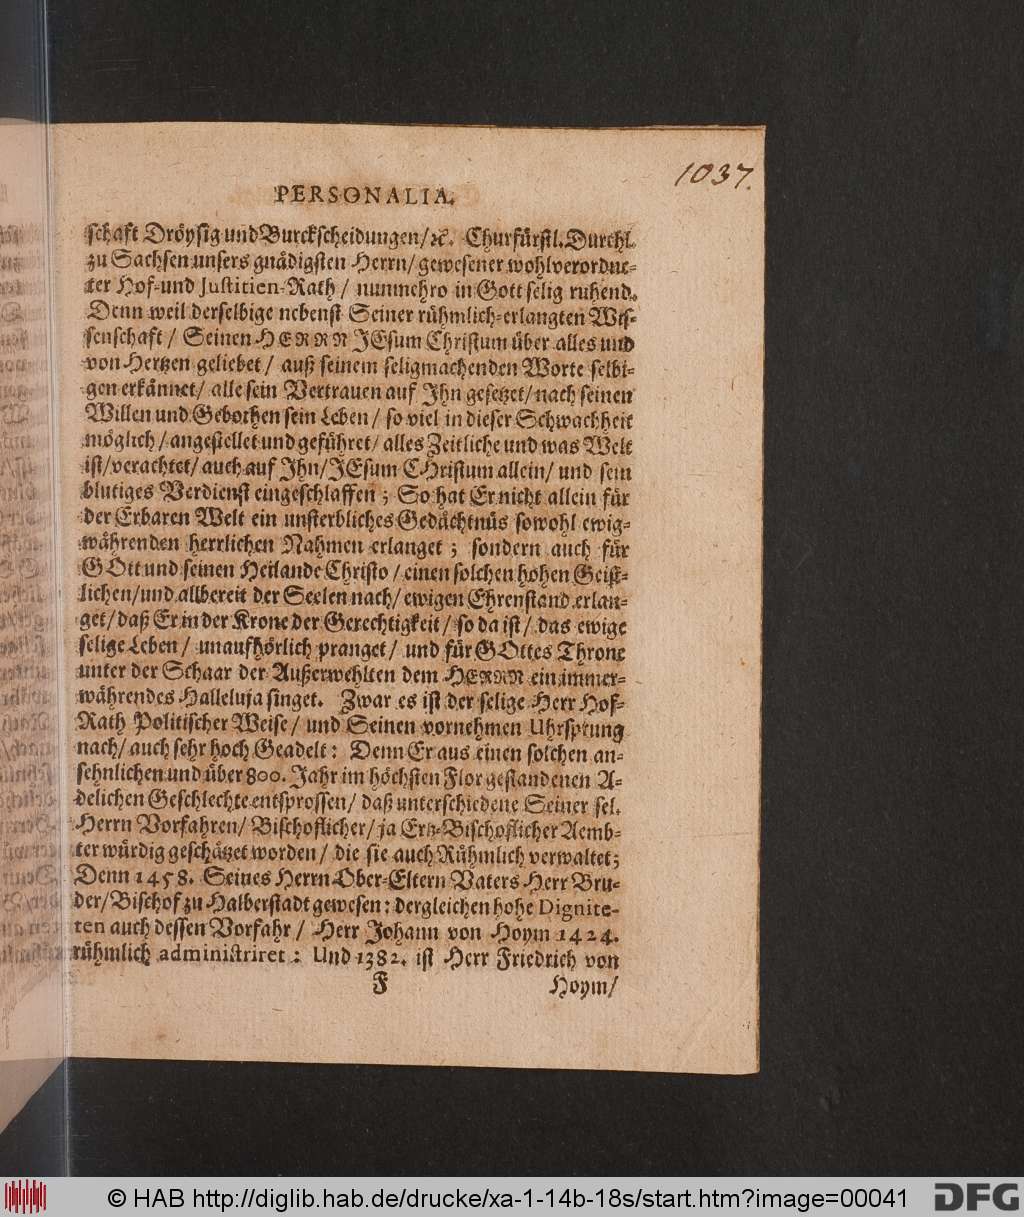 1037.
PERSONALIA.
schafft Dröysig und Burckscheidungen/ꝛc. Churfürstl. Durchl.
zu Sachsen unsers gnädigsten Herrn/ gewesener wohlverordne-
ter Hof-und Justitien-Rath/ nunmehro in Gott selig ruhend.
Denn weil derselbige nebenst Seiner rühmlich-erlangten Wis-
senschaft/ Seinen HERRN JEsum Christum über alles und
von Hertzen geliebet/ auß seinem seligmachenden Worte selbi-
gen erkännet/ alle sein Vertrauen auf Ihn gesetzet/ nach seinen
Willen und Gebothen sein Leben/ so viel in dieser Schwachheit
möglich/ angestellet und geführet/ alles Zeitliche und was Welt
ist/ verachtet/ auch auf Ihn/ JEsum CHristum allein/ und sein
blutiges Verdienst eingeschlaffen; So hat Er nicht allein für
der Erbaren Welt ein unsterbliches Gedächtnüs sowohl ewig-
währenden herrlichen Nahmen erlanget; sondern auch für
GOtt und seinen Heilande Christo/ einen solchen hohen Geist-
lichen/ und allbereit der Seelen nach/ ewigen Ehrenstand erlan-
get/ daß Er in der Krone der Gerechtigkeit/ so da ist/ das ewige
selige Leben/ unaufhörlich pranget/ und für GOttes Throne
unter der Schaar der Außerwehlten dem HERRN ein immer-
währendes Halleluja singet. Zwar es ist der selige Herr Hof-
Rath Politischer Weise/ und Seinen vornehmen Uhrsprung
nach/ auch sehr hoch Geadelt: Denn Er aus einen solchen an-
sehnlichen und über 800. Jahr im höchsten Flor gestandenen A-
delichen Geschlechte entsprossen/ daß unterschiedene Seiner sel.
Herrn Vorfahren/ Bischoflicher/ ja Ertz-Bischoflicher Aemb-
ter würdig geschätzet worden/ die sie auch Rühmlich verwaltet;
Denn 1458. Seines Herrn Ober-Eltern Vaters Herr Bru-
der/ Bischof zu Halberstadt gewesen: dergleichen hohe Dignite-
ten auch dessen Vorfahr/ Herr Johann von Hoym 1424.
rühmlich administriret: Und 1382. ist Herr Friedrich von
F Hoym/
© HAB http://diglib.hab.de/drucke/xa-1-14b-18s/start.htm?image=00041
DFG